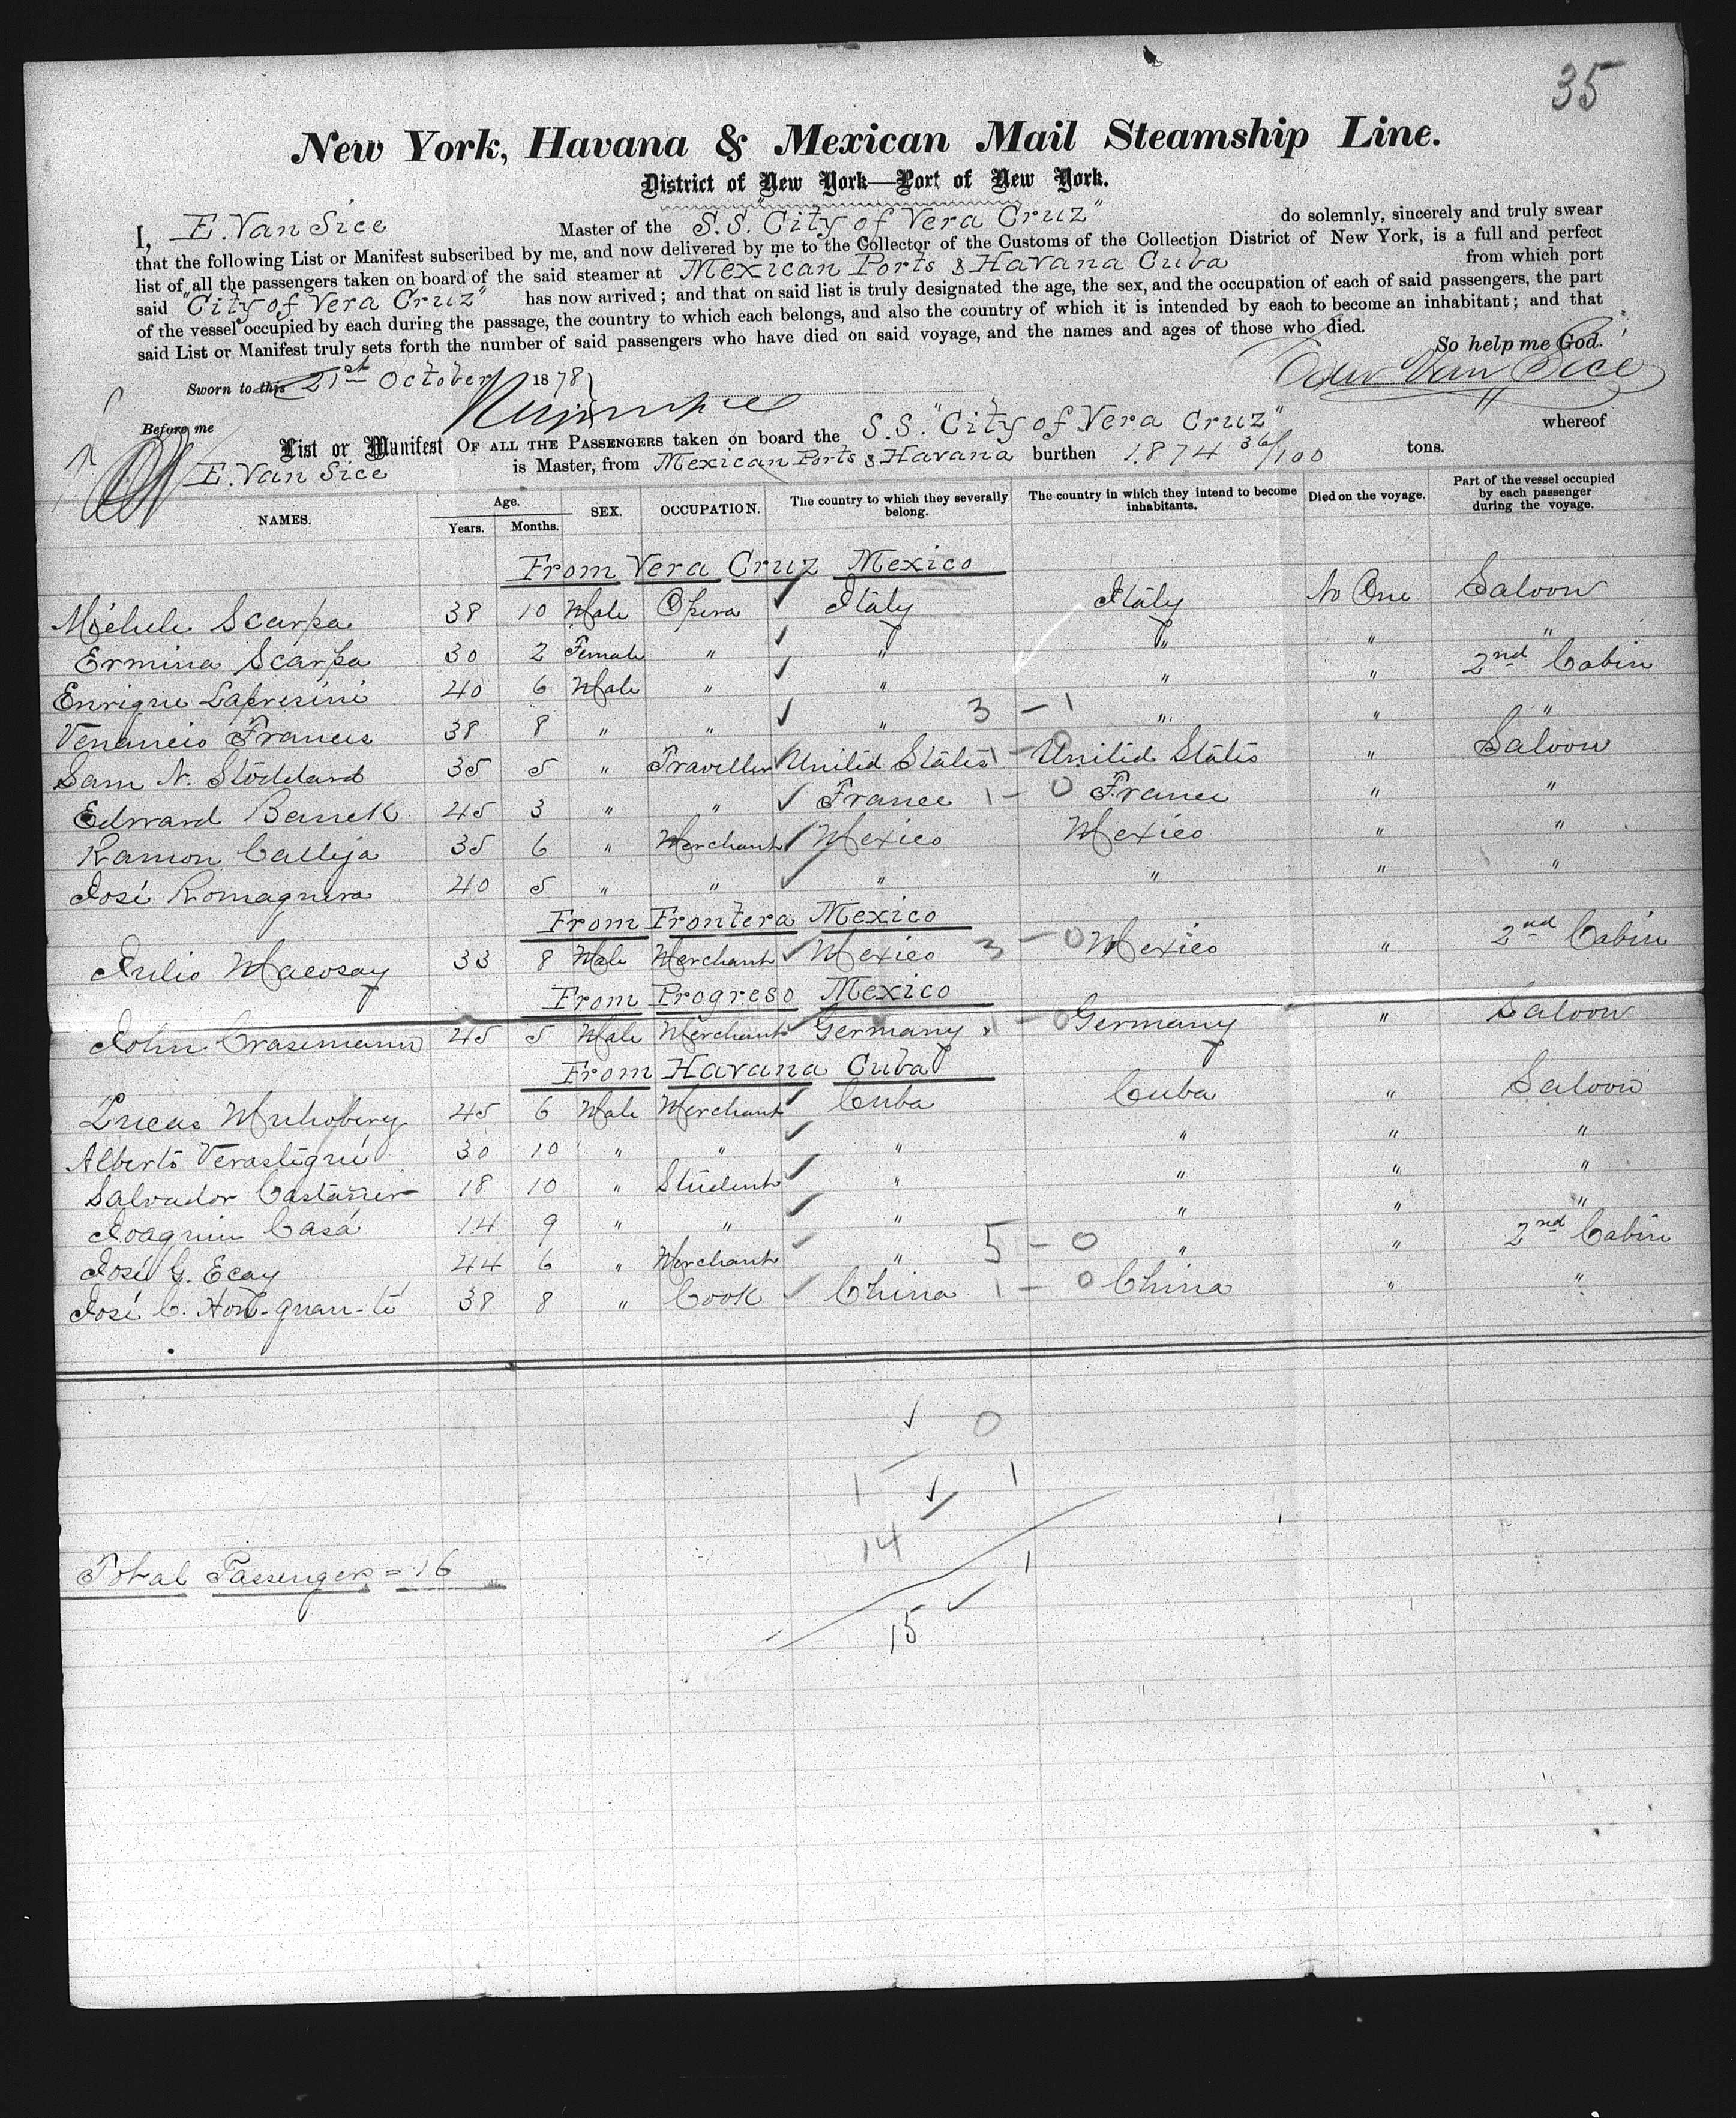 35
New York, Havana & Mexican Mail Steamship Line.
District of New York—Port of New York.
I, E. Van Sice Master of the S.S. "City of Vera Cruz" do solemnly, sincerely and truly swear
that the following List or Manifest subscribed by me, and now delivered by me to the Collector of the Customs of the Collection District of New York, is a full and perfect
list of all the passengers taken on board of the said steamer at Mexican Ports & Havana Cuba from which port
said "City of Vera Cruz" has now arrived; and that on said list is truly designated the age, the sex, and the occupation of each of said passengers, the part
of the vessel occupied by each during the passage, the country to which each belongs, and also the country of which it is intended by each to become an inhabitant; and that
said List or Manifest truly sets forth the number of said passengers who have died on said voyage, and the names and ages of those who died.
So help me God.
Sworn to this 21st October 1878 Van Sice
Before me
List or Manifest OF ALL THE PASSENGERS taken on board the S.S. "City of Vera Cruz" whereof
E. Van Sice is Master, from Mexican Ports & Havana burthen 1874 36/100 tons.
NAMES. Age. Years. Months. SEX. OCCUPATION. The country to which they severally belong. The country in which they intend to become inhabitants. Died on the voyage. Part of the vessel occupied by each passenger during the voyage.
From Vera Cruz Mexico
Michele Scarpa 38 10 Male Opera Italy Italy No One Saloon
Ermina Scarpa 30 2 Female " " " " "
Enrique 40 6 Male " " " " 2nd Cabin
Venancio Francis 38 8 " " " 3 - 1 " " "
Sam N. Stoddard 35 5 " Traveller United States 1 - 0 United States " Saloon
Edward 45 3 " " France 1 - 0 France " "
Ramon Calleja 35 6 " Merchant Mexico Mexico " "
José Romaguera 40 5 " " " " " "
From Frontera Mexico
Julio Macosay 33 8 Male Merchant Mexico 3 - 0 Mexico " 2nd Cabin
From Progreso Mexico
John Crasemann 45 5 Male Merchant Germany 1 - 0 Germany " Saloon
From Havana Cuba
Lucas 45 6 Male Merchant Cuba Cuba " Saloon
Alberto Verastigué 30 10 " " " " " "
Salvador Castañer 18 10 " Student " " " "
Joaquin Casá 14 9 " " " " " "
José G. Ecay 44 6 " Merchant " 5 - 0 " " 2nd Cabin
José C. 38 8 " Cook China 1 - 0 China " "
0
1 1
14
1
Total Passengers = 16
15